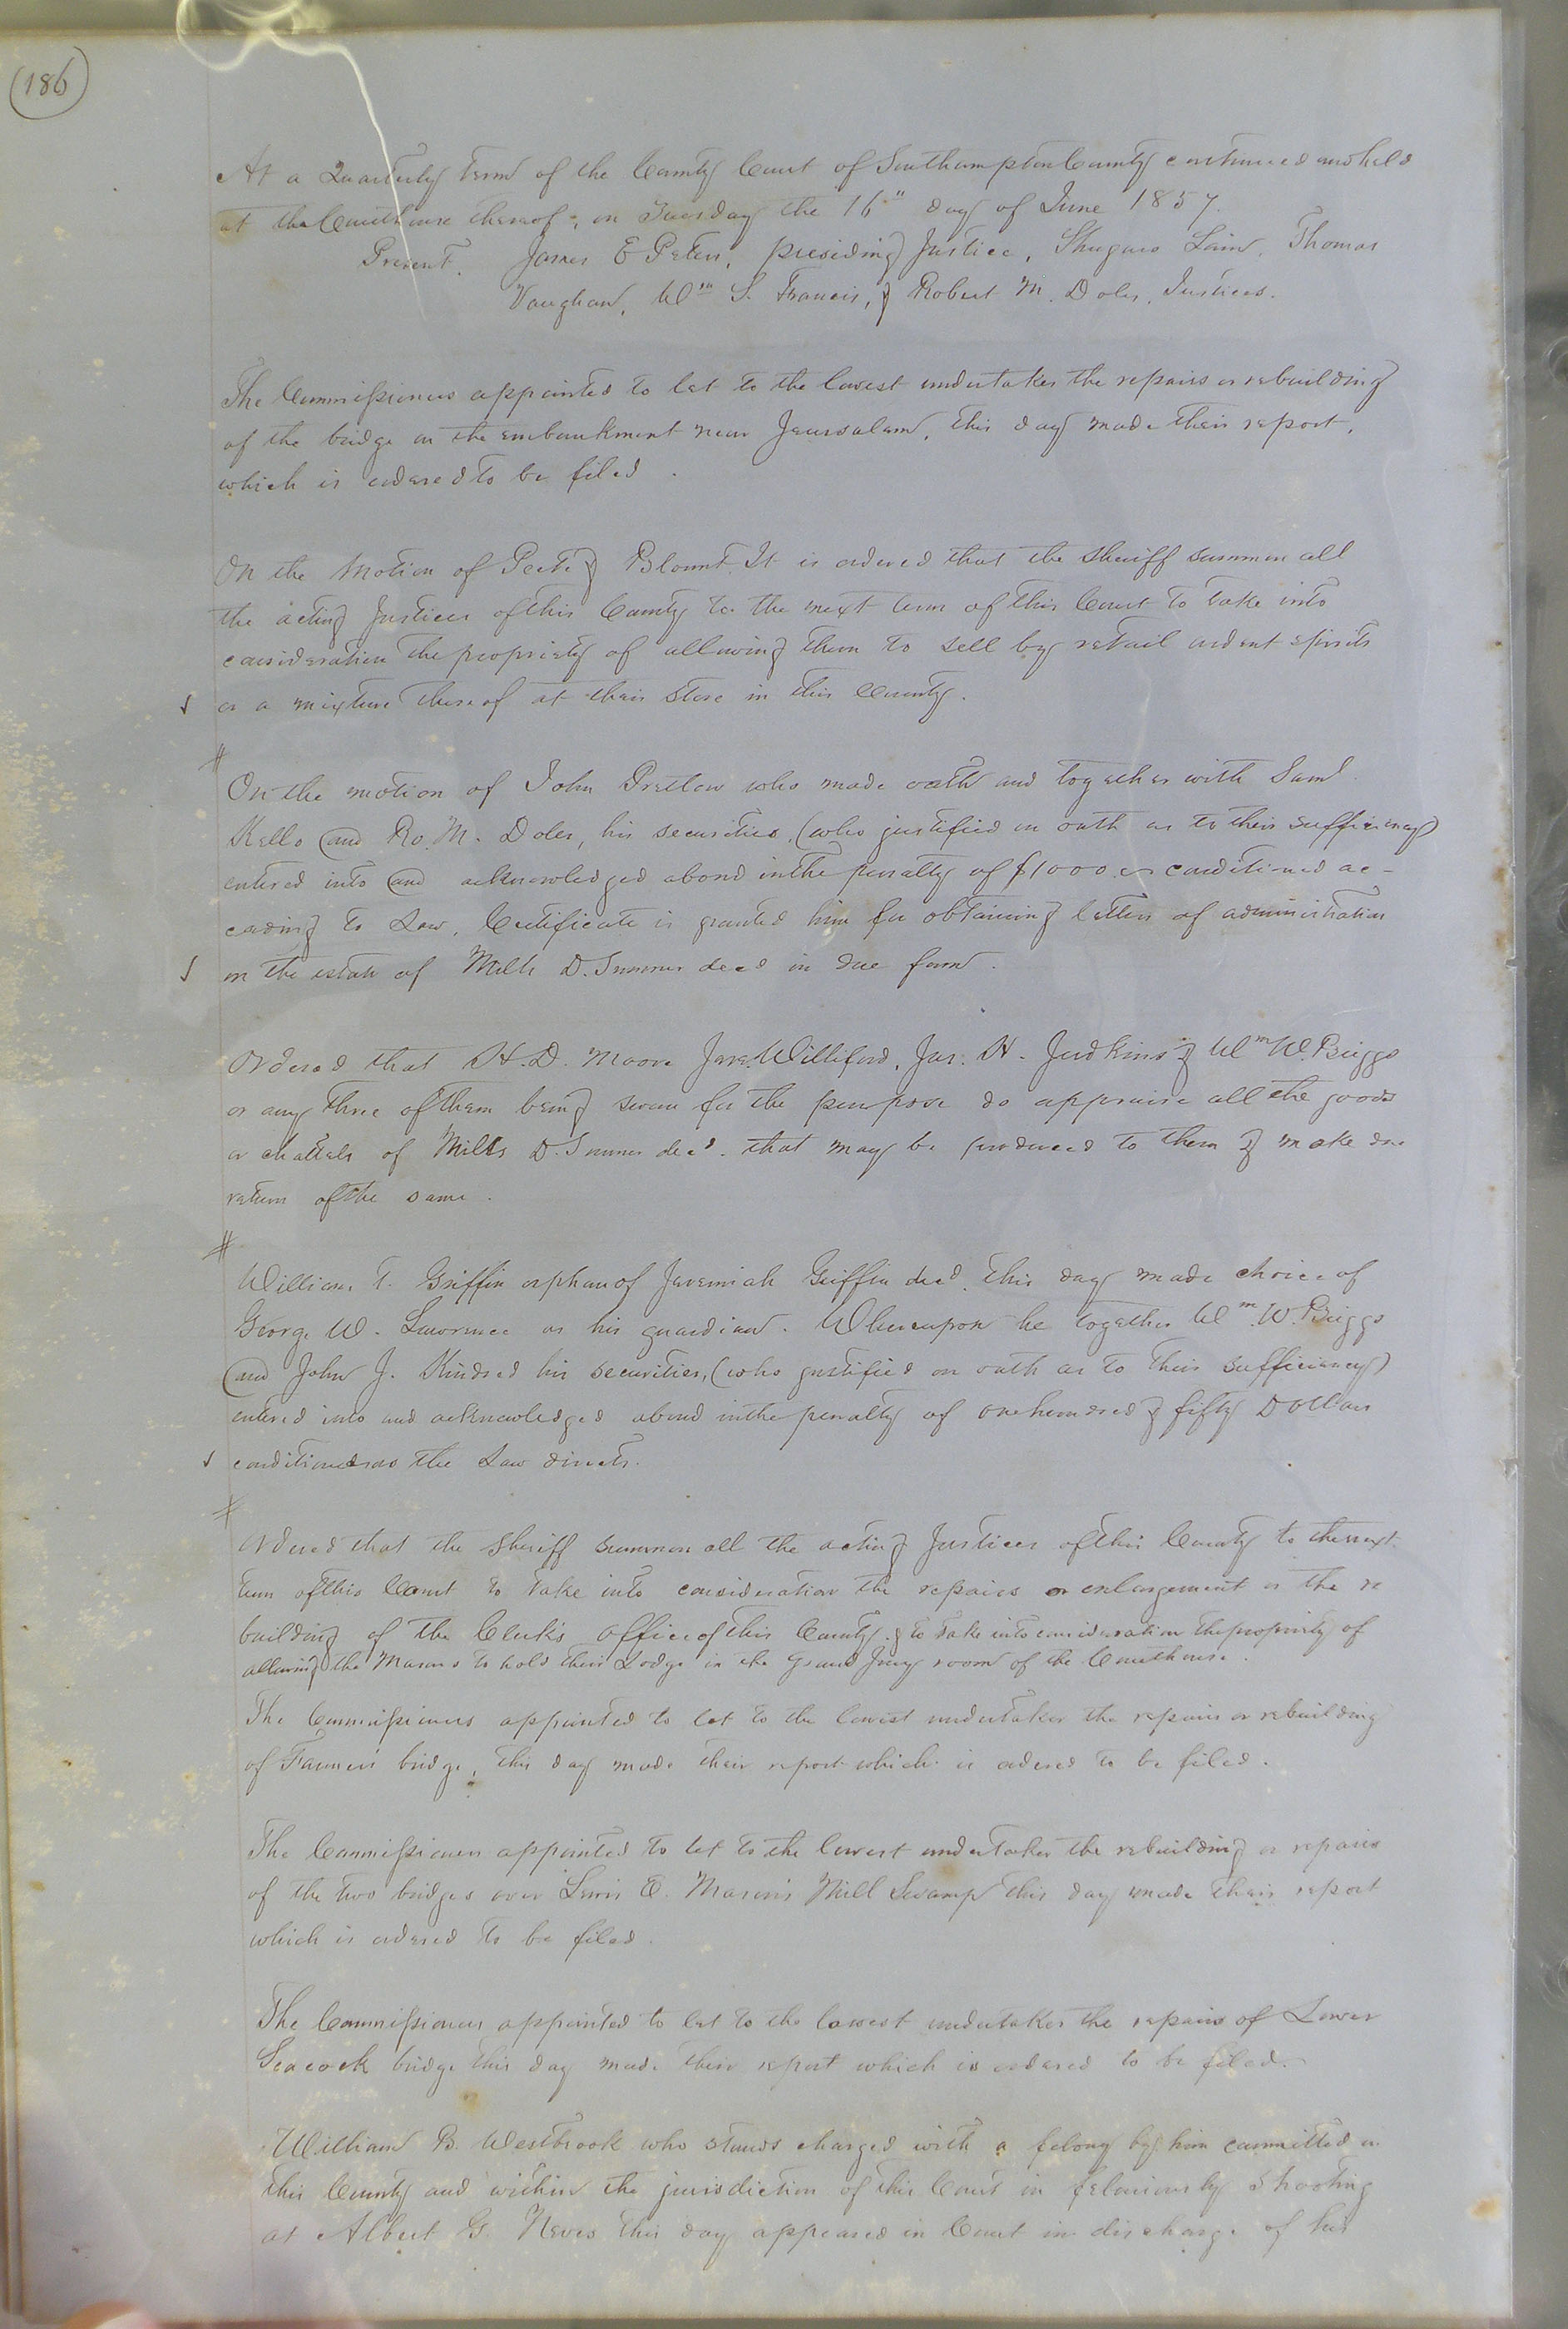 (186)
At a Quarterly term of the County Court of Southampton County continued and held
at the Courthouse thereof, on Tuesday the 16" day of June 1857.
Present. James E Peters, presiding Justice, Shugars Lain, Thomas
Vaughan, Wm S. Francis, & Robert M. Doles, Justices.
The Commissioners appointed to let to the lowest undertaker the repairs or rebuilding
of the bridge on the embankment near Jerusalem, this day made their report,
which is ordered to be filed.
On the motion of Peete & Blount. It is ordered that the Sheriff summon all
the acting Justices of this County to the next term of this Court to take into
consideration the propriety of allowing them to sell by retail ardent spirits
or a mixture thereof at their store in this County.
On the motion of John Pretlow who made oath and together with Saml.
Kello and Ro. M. Doles, his securities, (who justified on oath as to their sufficiency)
entered into and acknowledged a bond in the penalty of $1000. conditioned ac-
cording to Law, Certificate is granted him for obtaining letters of administration
on the estate of Mills D. Sumner decd in due form.
Ordered that H. D. Moore Williford, Jas. H. Judkins & Wm W. Briggs
or any three of them being sworn for the purpose do appraise all the goods
or chattels of Mills D. Sumner decd. that may be produced to them & make due
return of the same.
William T. Griffin orphan of Jeremiah Griffin decd. this day made choice of
George W. Lawrence as his guardian. Whereupon he together Wm. W. Briggs
and John J. Kindred his securities, (who justified on oath as to their sufficiency)
entered into and acknowledged a bond in the penalty of one hundred & fifty Dollars
conditioned as the Law directs.
Ordered that the Sheriff summon all the acting Justices of this County to the next
term of this Court to take into consideration the repairs or enlargement or the re
building of the Clerk's office of this County. & to take into consideration the propriety of
allowing the Masons to hold their Lodge in the Grand Jury room of the Courthouse.
The Commissioners appointed to let to the lowest undertaker the repairs or rebuilding
of bridge, this day made their report which is ordered to be filed.
The Commissioners appointed to let to the lowest undertaker the rebuilding or repairs
of the two bridges over Lewis E. Mason's Mill Swamp this day made their report
which is ordered to be filed.
The Commissioners appointed to let to the lowest undertaker the repairs of Lower
Seacock bridge this day made their report which is ordered to be filed.
William B. Westbrook who stands charged with a felony by him committed in
this County and within the jurisdiction of this Court in feloniously shooting
at Albert G. Neves this day appeared in Court in discharge of his